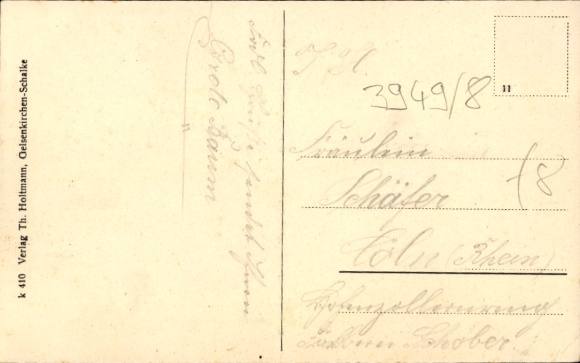 k 410 Verlag Th. Holtmann, Gelsenkirchen-Schalke
Grüße sendet Ihnen
Grete Baum
3949/8
11
Fräulein
Schäfer
Cöln (Rhein)
Hohenzollernring
Schober